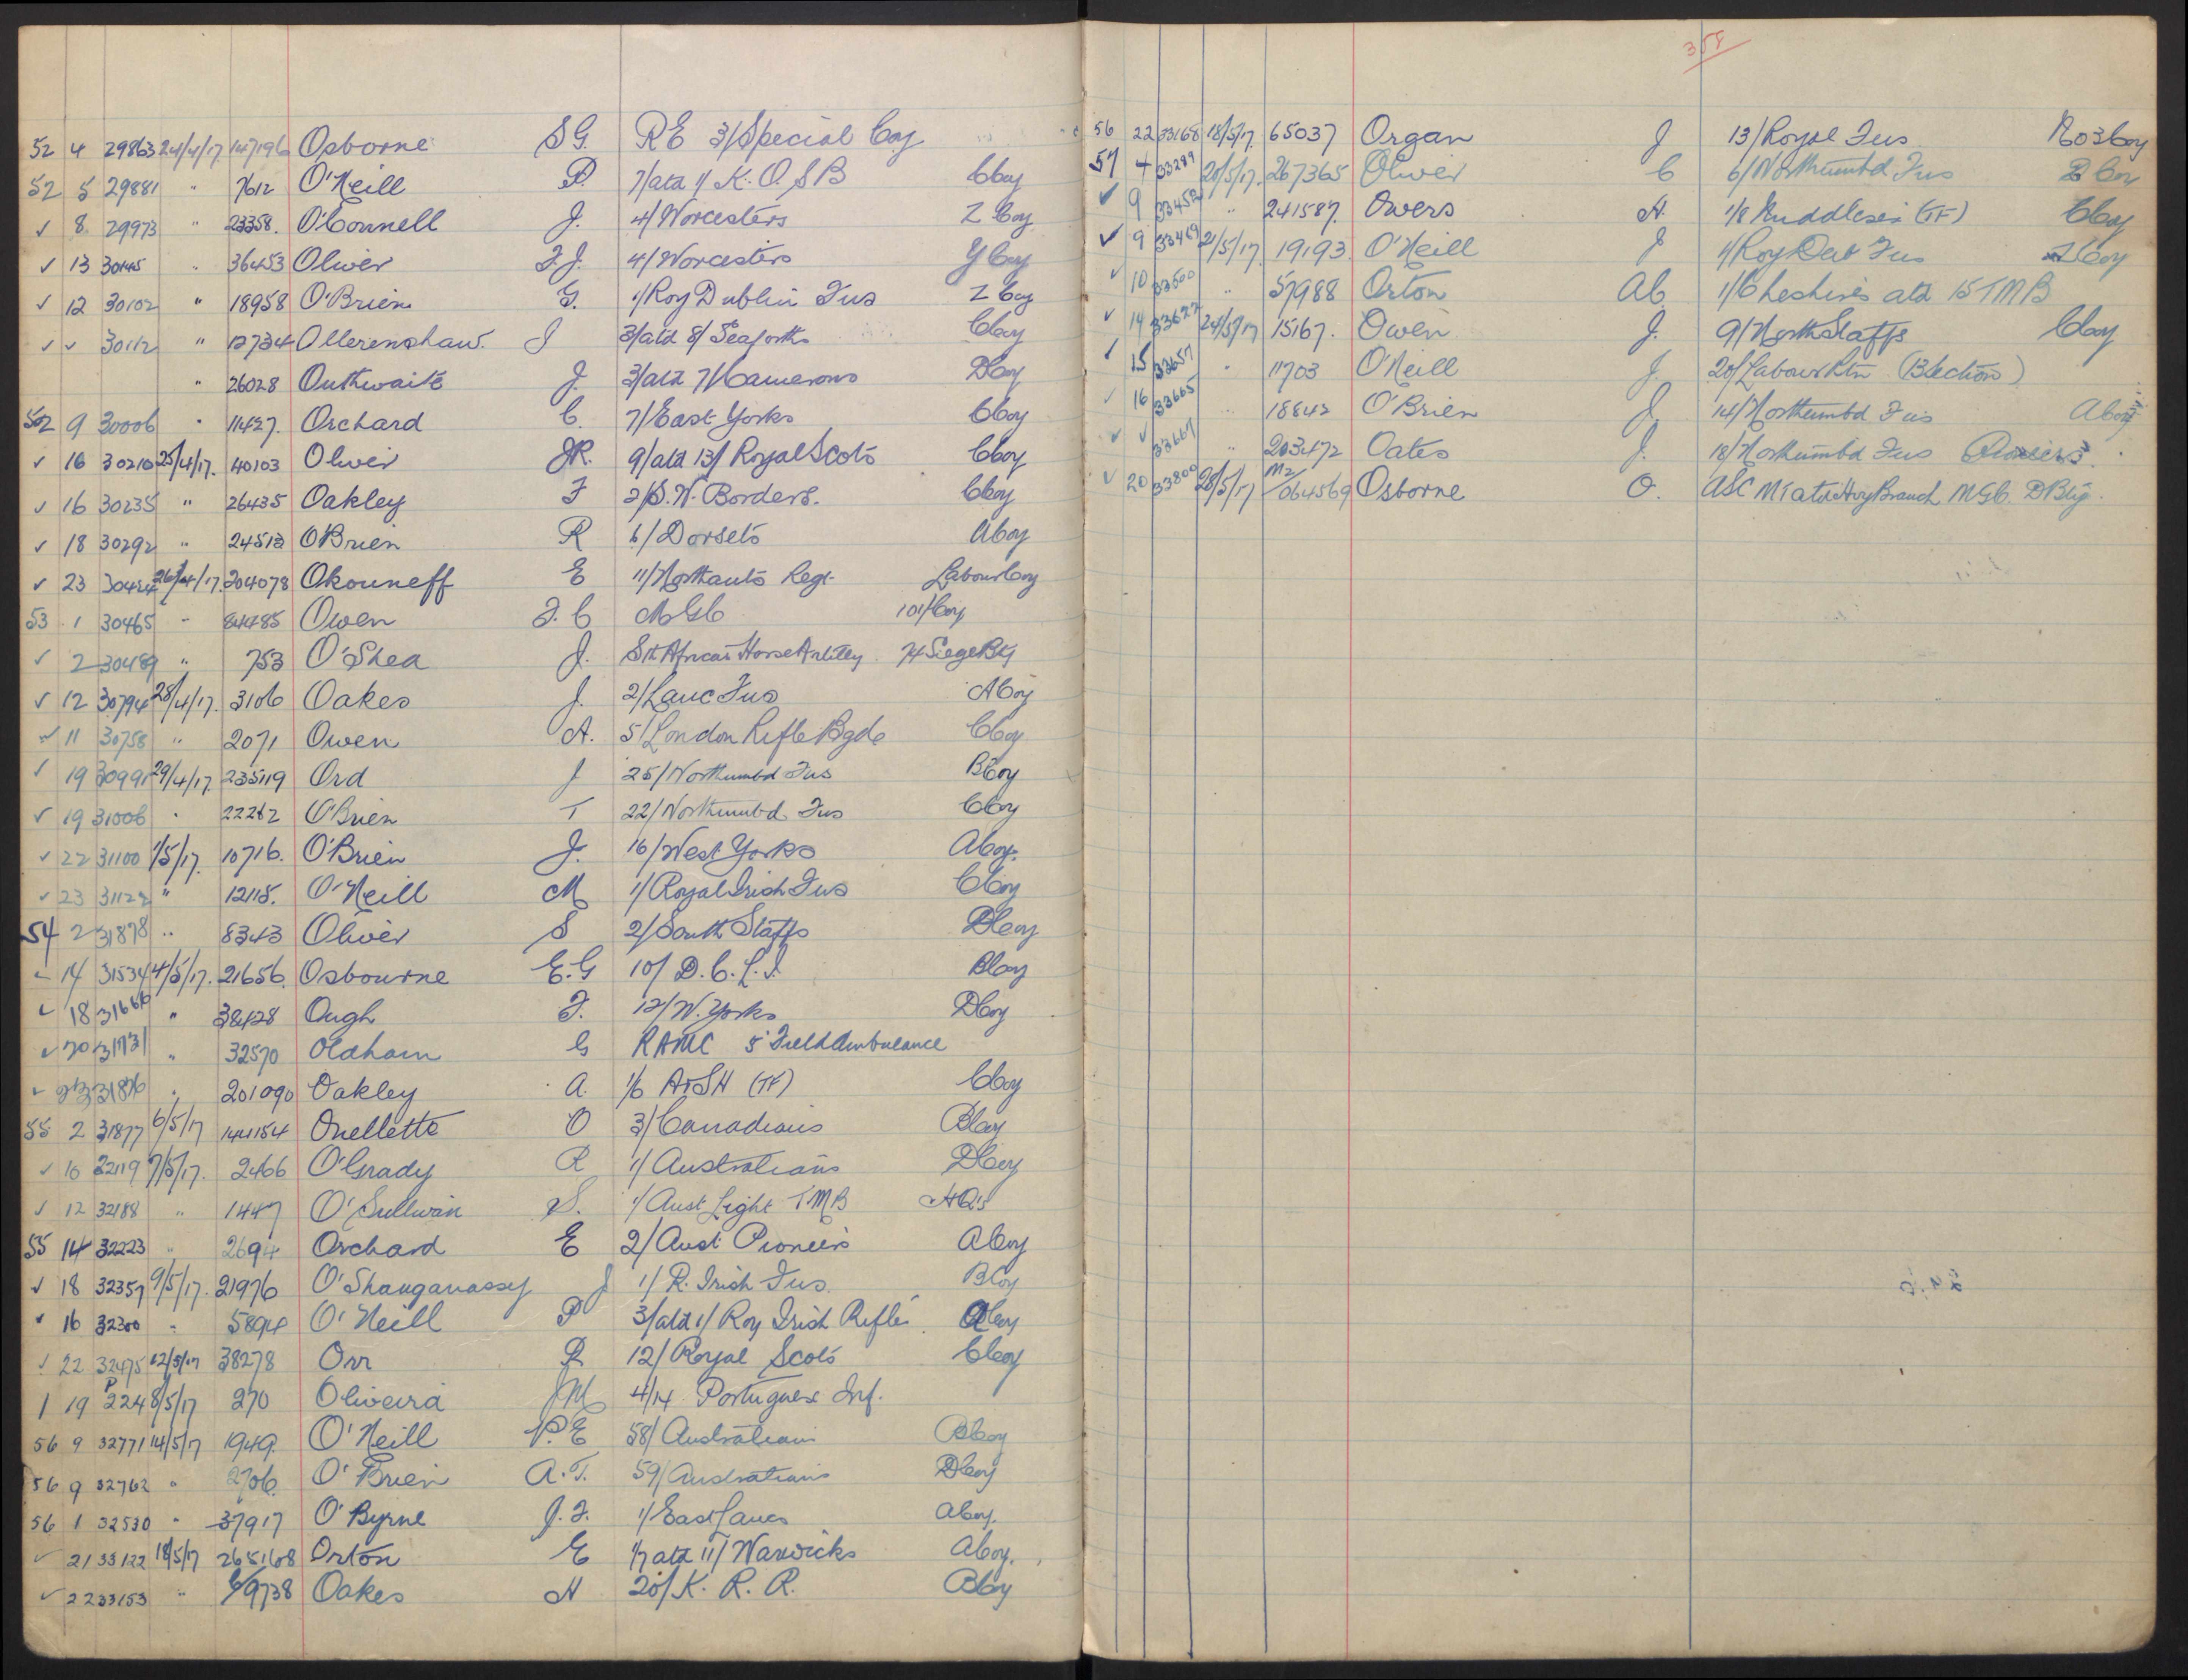 52 4 29863 24/4/17 147196 Osborne S G. R E 3/Special Coy
52 5 29881 " 7612 O'Neill P. 7/atd 1/ K. O. S B C Coy
✓ 8 29973 " 23358. O'Connell J. 4/Worcesters Z Coy
✓ 13 30145 " 36453 Oliver F.J. 4/Worcesters Y Coy
✓ 12 30102 " 18958 O'Brien G. 1/Roy Dublin Fus Z Coy
✓ ✓ 30112 " 12734 Ollerenshaw. J 3/atd 8/ Seaforths C Coy
" 26028 Outhwaite J. 3/atd 7/Camerons D Coy
52 9 30006 " 11427. Orchard C. 7/East Yorks C Coy
✓ 16 30210 25/4/17. 40103 Oliver JR. 9/atd 13/ Royal Scots C Coy
✓ 16 30235 " 26435 Oakley F 2/S. W. Borders. C Coy
✓ 18 30292 " 24512 O'Brien R 6/Dorsets A Coy
✓ 23 30424 26/4/17. 204078 Okouneff E 11/Northants Regt. Labour Coy
53 1 30465 " 84485 Owen F. C M G C 101/Coy
✓ 2 30489 " 753 O'Shea J. Sth African Horse Artilley 74 Siege Bty
✓ 12 30794 28/4/17. 3106 Oakes J. 2/Lanc Fus A Coy
✓ 11 30758 " 2071 Owen A. 5/London Rifle Bgde C Coy
✓ 19 30991 29/4/17. 235119 Ord J 25/Northumbd Fus B Coy
✓ 19 31006 " 22262 O'Brien T 22/Northumbd Fus C Coy
✓ 22 31100 1/5/17. 10716. O'Brien J. 16/West Yorks A Coy.
✓ 23 31122 " 12115. O'Neill M 1/Royal Irish Fus C Coy
54 2 31878 " 8343 Oliver S 2/South Staffs D Coy
✓ 14 31534 4/5/17. 21656. Osbourne E.G 10/ D. C. L. I. B Coy
✓ 18 31666 " 38428 Ough F. 12/W. Yorks D Coy
✓ 20 31731 " 32570 Oldham G RAMC 5 Field Ambulance
✓ 23 31876 " 201090 Oakley A. 1/6 A&SH (TF) C Coy
55 2 31877 6/5/17 144154 Ouellette O 3/Canadians B Coy
✓ 10 32119 7/5/17. 2466 O'Grady R 1/ Australians D Coy
✓ 12 32188 " 1447 O'Sullivan S. 1/Aust Light T M B HQrs
55 14 32223 " 2694 Orchard E 2/Aust Pioneers A Coy
✓ 18 32357 9/5/17. 21976 O'Shauganassy J 1/ R. Irish Fus. B Coy
✓ 16 32300 " 5894 O'Neill P 3/atd 1/ Roy Irish Rifles A Coy
✓ 22 32475 12/5/17 38278 Orr R 12/ Royal Scots C Coy
1 19 P 224 8/5/17 270 Oliveira JM 4/14 Portuguese Inf.
56 9 32771 14/5/17 1949. O'Neill P.E 58/ Australians B Coy
56 9 32762 " 2706. O'Brien A.T. 59/Australians D Coy
56 1 32530 " 37917 O'Byrne J. F. 1/East Lancs A Coy.
✓ 21 33122 18/5/17 265168 Orton E 1/7 atd 11/ Warwicks A Coy.
✓ 22 33153 " C/9738 Oakes H 20/K. R. R. B Coy
358
56 22 33168 18/5/17. 65037 Organ J 13/Royal Fus No 3 Coy
57 4 33299 20/5/17. 267365 Oliver C 6/Northumbd Fus B Coy
✓ 9 33452 " 241587. Owers A. 1/8 Middlesex (TF) C Coy
✓ 9 33469 21/5/17. 19193. O'Neill J 1/Roy Dub Fus Z Coy
✓ 10 33500 " 57988 Orton Ab. 1/Cheshires atd 15 TMB
✓ 14 33622 24/5/17 15167. Owen J. 9/North Staffs C Coy
✓ 15 33657 " 11703 O'Neill J. 20/Labour Btn (B Section)
✓ 16 33665 " 18842 O'Brien J 14/Northumbd Fus A Coy
✓ ✓ 33667 " 203472 Oates J. 18/Northumbd Fus Pioneers.
✓ 20 33800 28/5/17 M2/064569 Osborne O. ASC MT atd Hvy Branch M G C. D Bty.